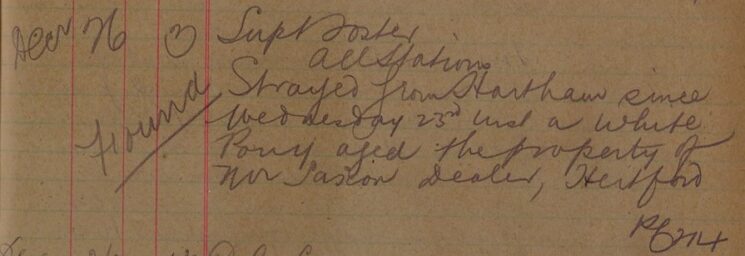 Decr 26 3 Supt Foster
All Stations
Strayed from Hartham since
Wednesday 23rd inst a White
Found
Pony aged the property of
Mr Saxon Dealer, Hertford
PC 274